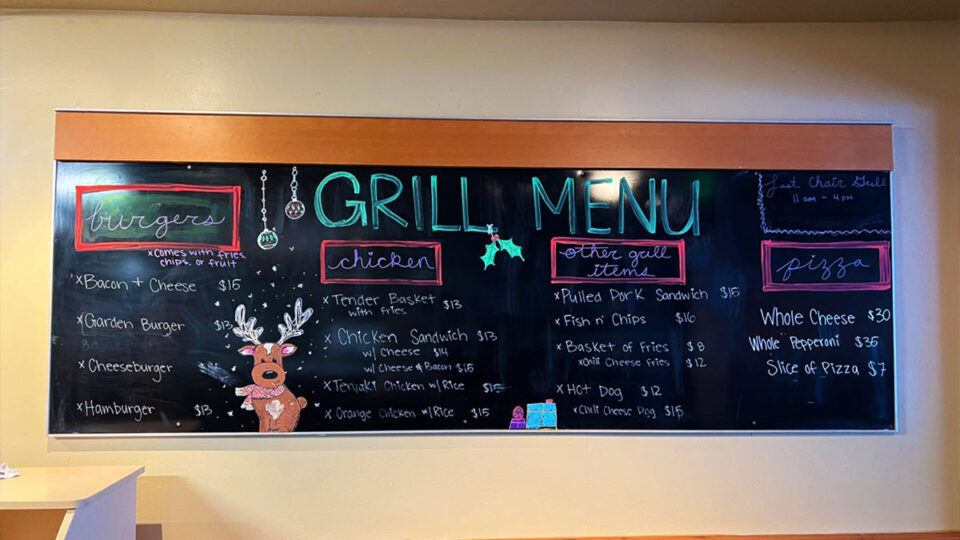 GRILL MENU
Last Chair Grill
11 am - 4pm
burgers
*comes with fries,
chips, or fruit
*Bacon + Cheese $15
*Garden Burger $13
*Cheeseburger
*Hamburger $13
chicken
*Tender Basket $13
with fries
*Chicken Sandwich $13
w/ Cheese $14
w/ Cheese & Bacon $15
*Teriyaki Chicken w/ Rice $15
*Orange Chicken w/ Rice $15
other grill
items
*Pulled Pork Sandwich $15
*Fish n' Chips $16
*Basket of Fries $8
*Chili Cheese Fries $12
*Hot Dog $12
*Chili Cheese Dog $15
pizza
Whole Cheese $30
Whole Pepperoni $35
Slice of Pizza $7